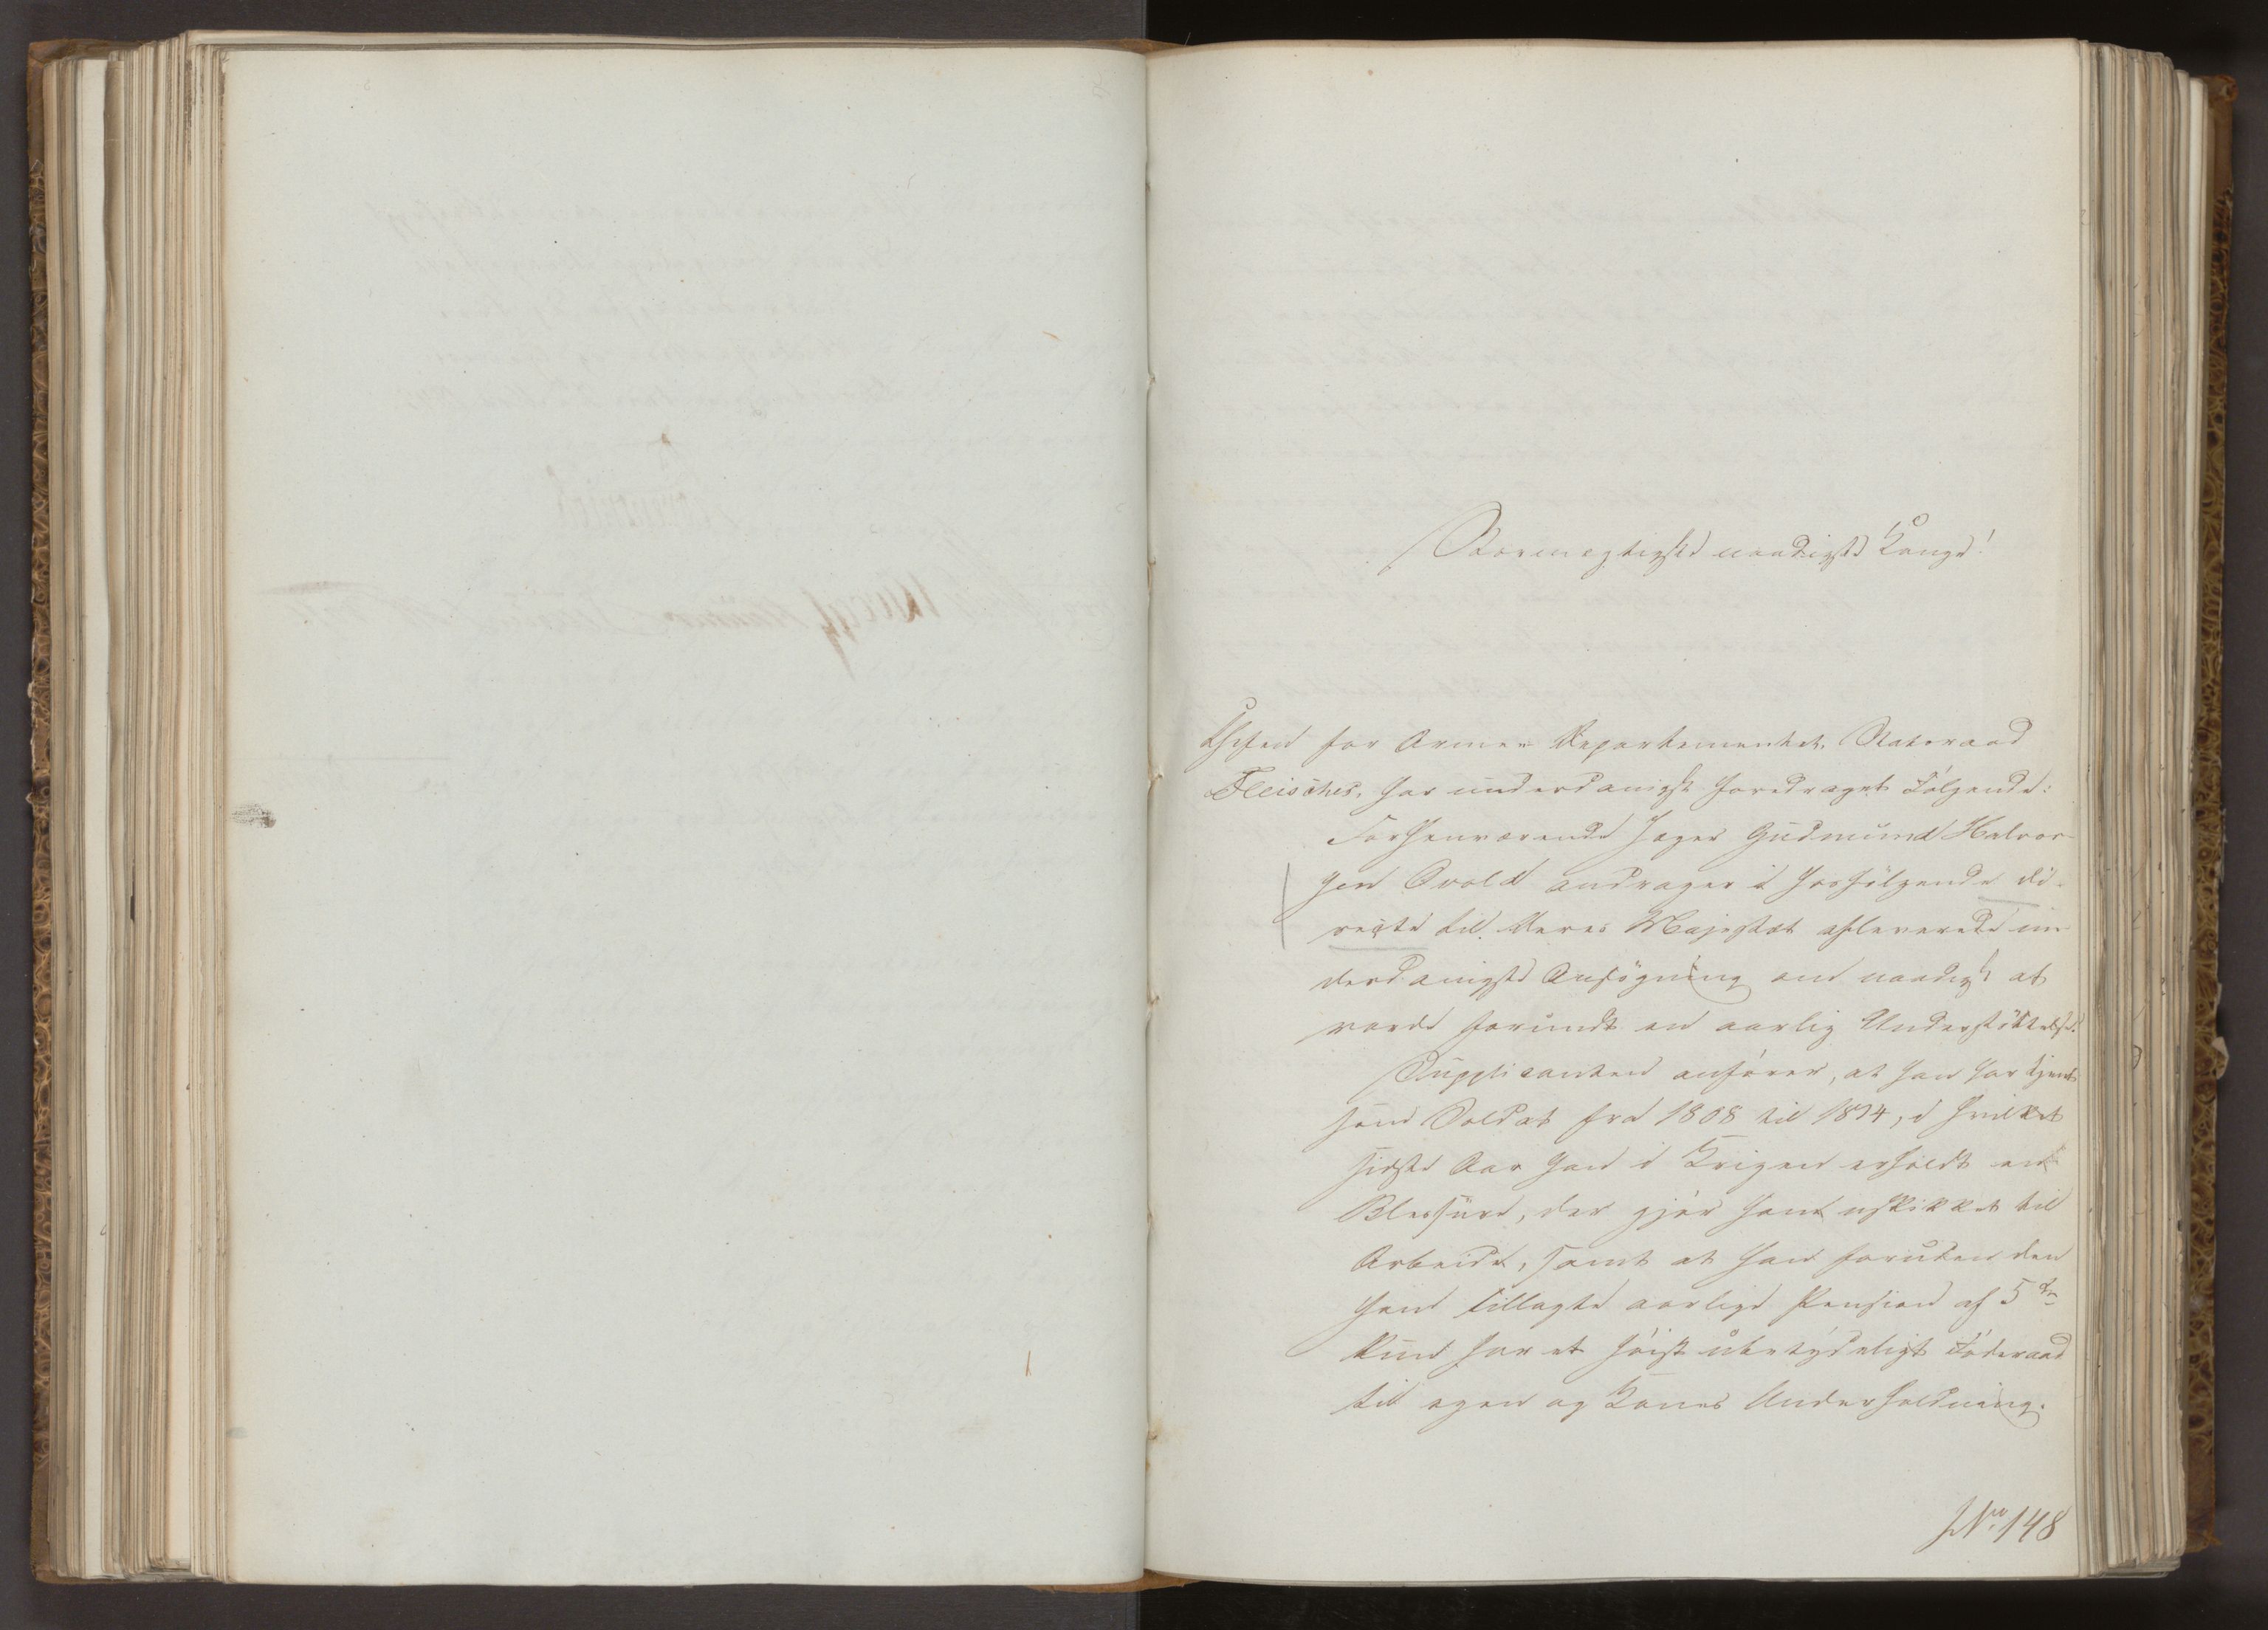 Stormægtigste naadigste Konge!
Chefen for Armee-Departementet, Statsraad
Fleischer, har underdanigst foredraget Følgende:
Forhenværende Jæger Gudmund Halvor-
sen Svold andrager i hosfølgende di-
recte til Deres Majestæt afleverede un-
derdanigste Ansøgning om naadigst at
vorde forundt en aarlig Understøttelse.
Supplicanten anfører, at han har tjent
som Soldat fra 1808 til 1814, i hvilket
sidste Aar han i Krigen erholdt en
Blessure, der gjør ham uskikket til
Arbeide, samt at han foruden den
ham tillagte aarlige Pension af 5
kun har et høist ubetydeligt Føderaad
til egen og Kones Underholdning.
No. 148